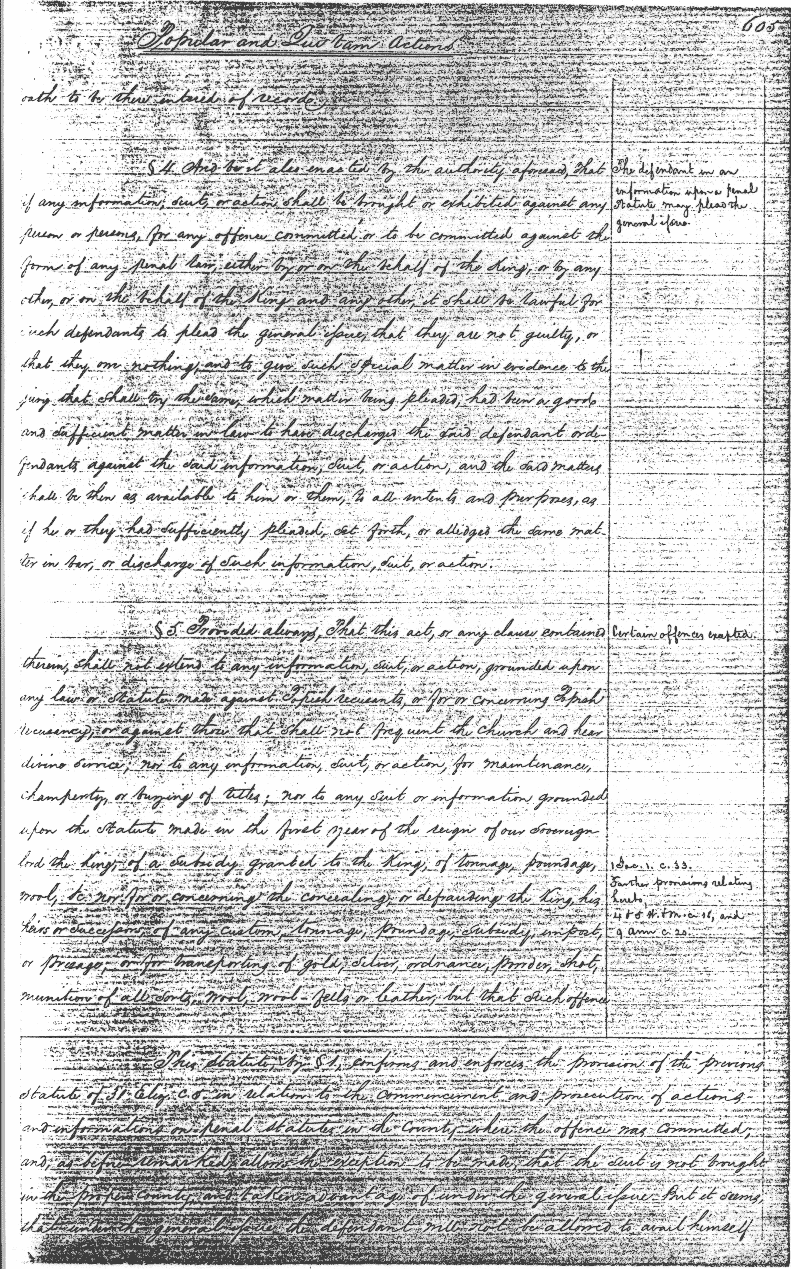 605
Popular and Qui tam Actions
oath to be there entered of record.
§ 4. And be it also enacted by the authority aforesaid, That
if any information, suit, or action shall be brought or exhibited against any
person or persons, for any offence committed or to be committed against the
form of any penal law, either by or on the behalf of the King, or by any
other, or on the behalf of the King and any other, it shall be lawful for
such defendants to plead the general issue, that they are not guilty, or
that they owe nothing, and to give such special matter in evidence to the
jury that shall try the same, which matter being pleaded, had been a good
and sufficient matter in law to have discharged the said defendant or de-
fendants against the said information, suit, or action, and the said matters
shall be then as available to him or them, to all intents and purposes, as
if he or they had sufficiently pleaded, set forth, or alledged the same mat-
ter in bar, or discharge of such information, suit, or action.
The defendant in an
information upon a penal
statute may plead the
general issue.
§ 5. Provided always, That this act, or any clause contained
therein, shall not extend to any information, suit, or action, grounded upon
any law or statute made against Popish recusants, or for or concerning Popish
recusancy, or against those that shall not frequent the church and hear
divine service; nor to any information, suit, or action, for maintenance,
champerty, or buying of titles; nor to any suit or information grounded
upon the statute made in the first year of the reign of our Sovereign
lord the king, of a subsidy granted to the King, of tonnage, poundage,
wool, &c. nor for or concerning the concealing, or defrauding the King, his
heirs or successors, of any custom, tonnage, poundage, subsidy, impost,
or prisage; or for transporting of gold, silver ordnance, powder, shot,
munition of all sorts, wool, wool-fells or leather, but that such offence
Certain offences excepted.
1 Jac. 1. c. 33.
Farther provisions relating
hereto,
4 & 5 W. & M. c. 16, and
9 Ann c. 20.
This statute, by § 1, confirms and enforces the provision of the previous
statute of 31 Eliz. c. 5 in relation to the commencement and prosecution of actions
and informations on penal statutes in the County where the offence was committed,
and, as before remarked, allows the exception to be made, that the suit is not brought
in the proper County, and taken advantage of under the general issue. But it seems,
that under the general issue the defendant will not be allowed to avail himself